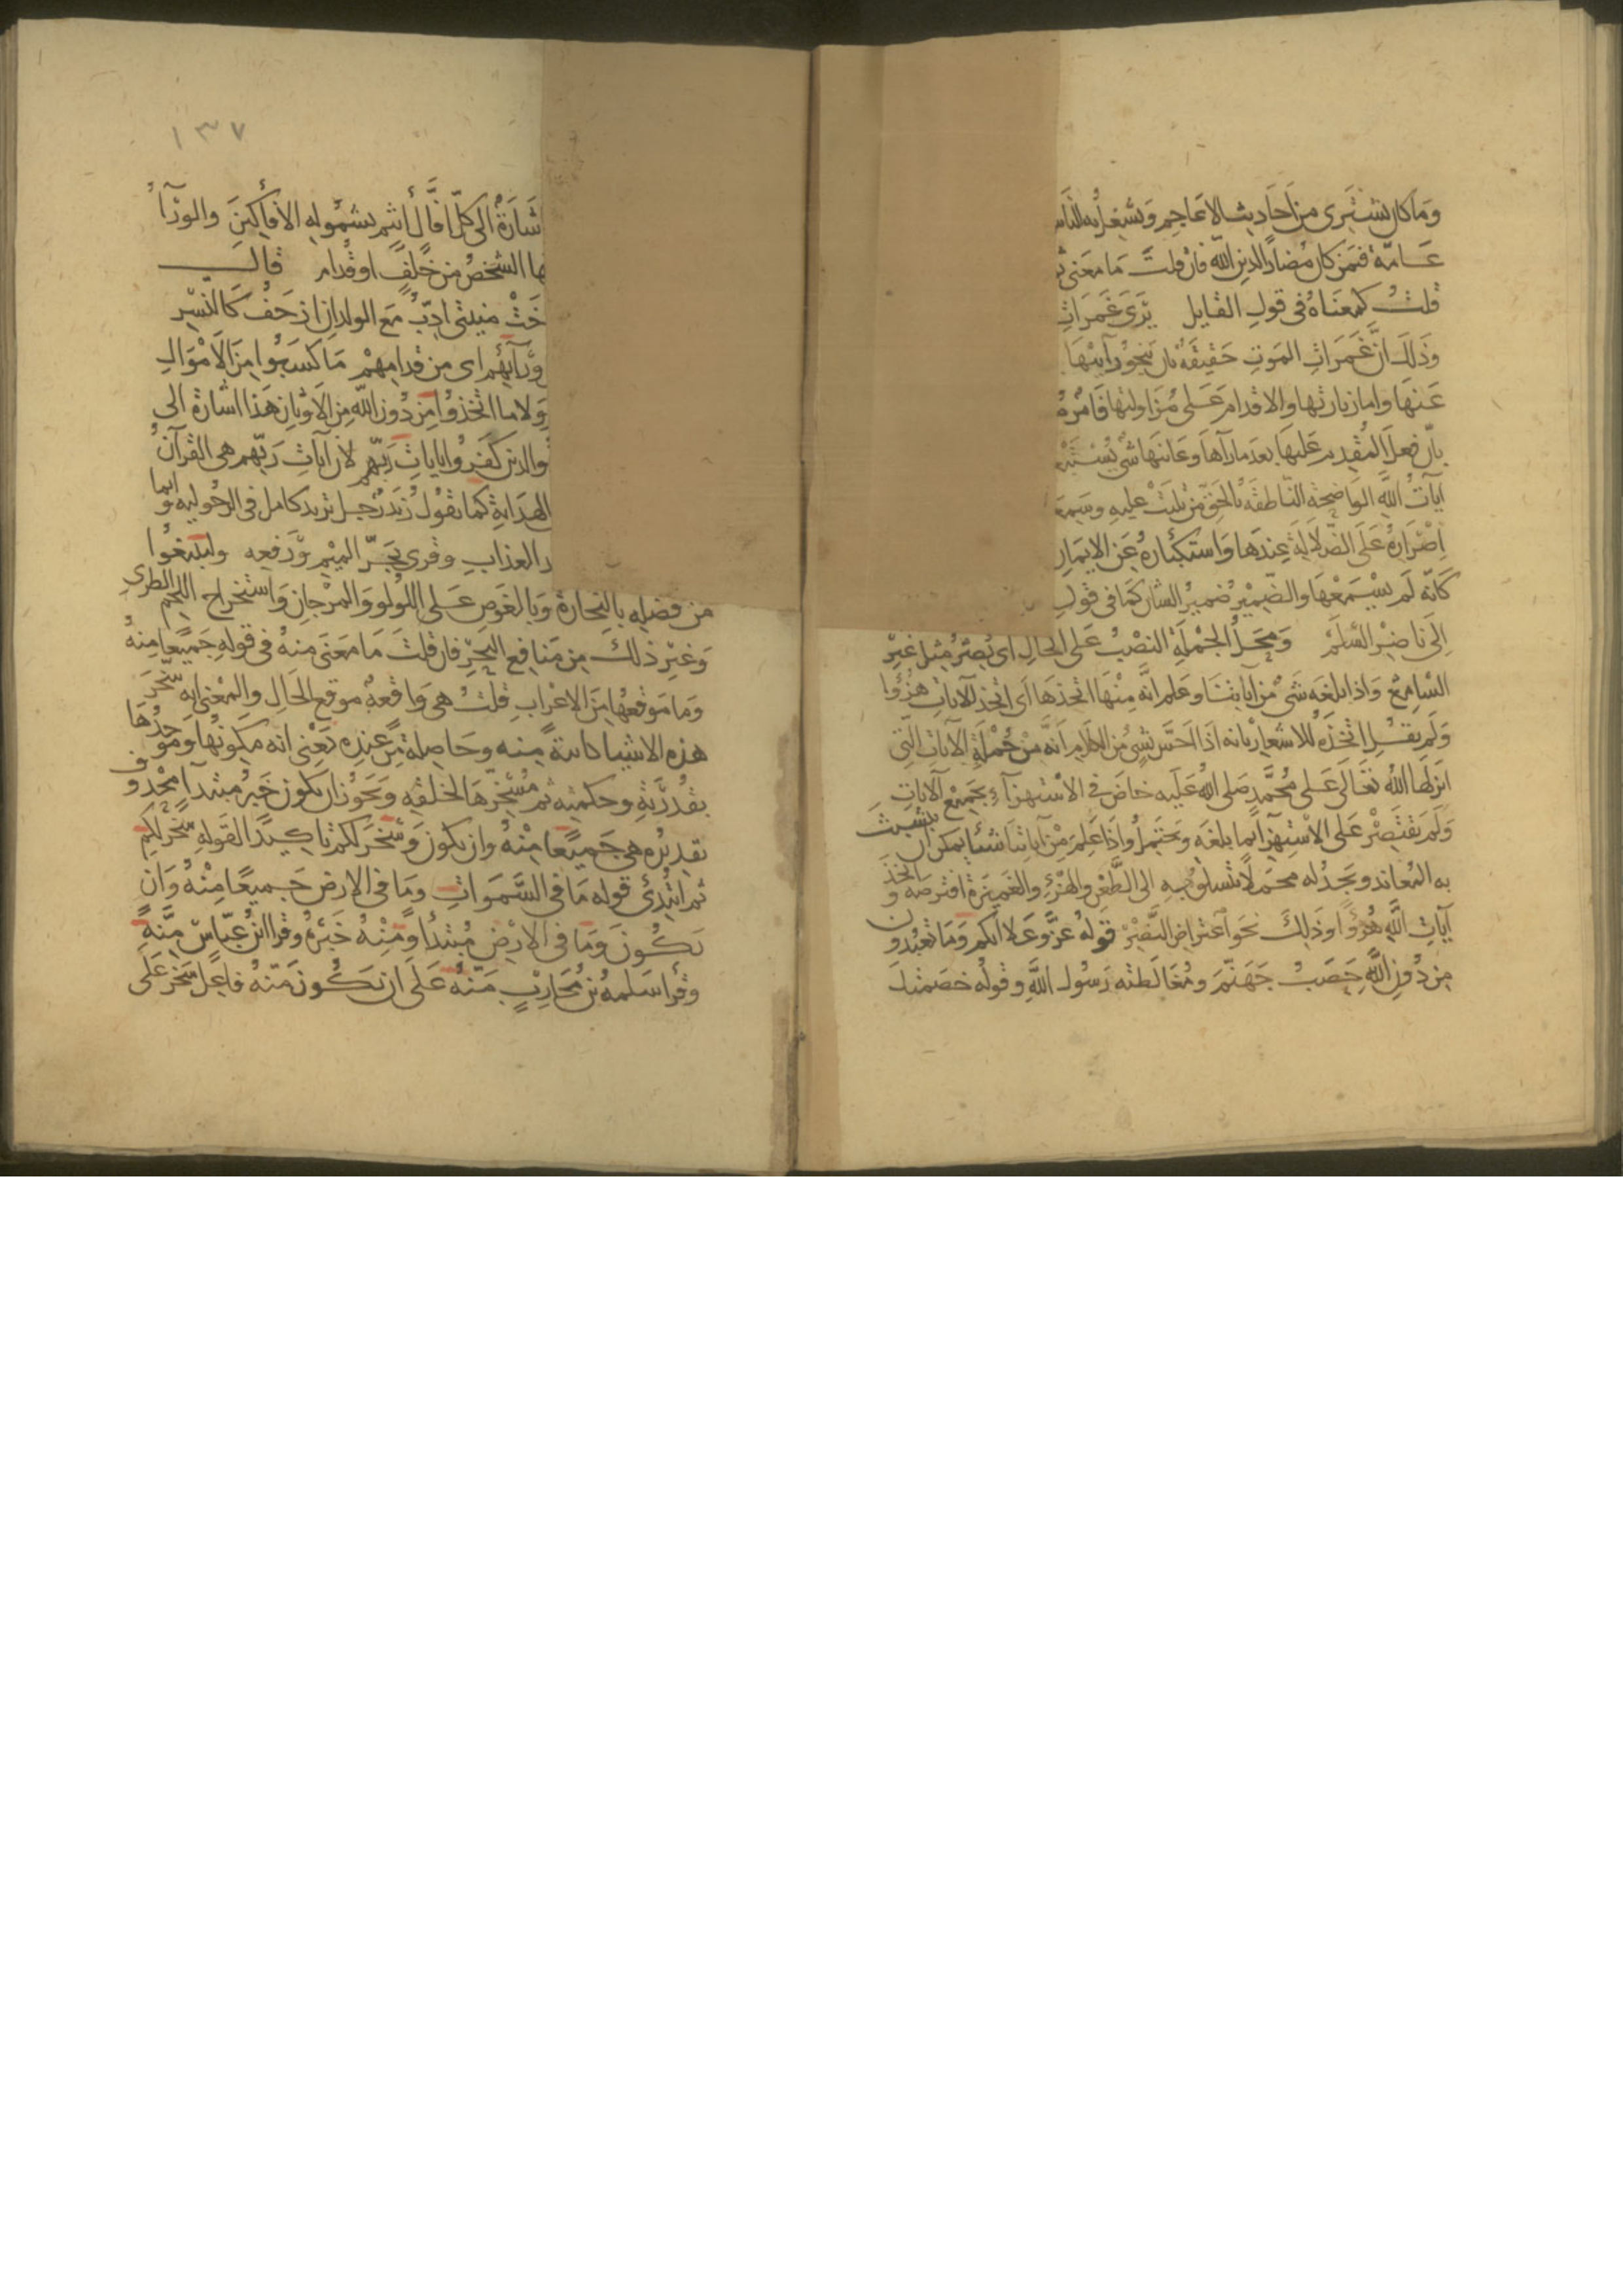 وَمَا كان يشتَرى من اَحَاديث الاعاجم وَيشغل به الناس
عَــامّة فى مَن كان مُضارًا لدين الله فان قلتَ مَا مَعنى
قلتُ كمعنَاهُ فى قول القايل يَرَى غَمَرَاتِ
وَذلك انَّ غَمَرَاتِ الموتِ حَقيقَةٌ بان ينجو رآييْهَا
عَنهَا واما زيارتها والاقدام عَــلى مُزَاولتها فَامْرٌ
بانّ فعلَ المُقْدِم عَليهَا بعدَ مارآهَا وعَاينَهَا شى يُسْتَبْعد
آيَاتُ اللَّهِ الوَاضِحَة النّاطقَة بالحَقّ مَن تُليَتْ عليهِ وسَمِعَهَا
اِصْرَارهُ عَلى الضّلالَةِ عِندَها وَاستكبَارهُ عَن الايمانِ
كَانّه لَم يسْمَعْهَا والضّميْر ضميرُ الشان كمَا فى قولِ
اِلى نَاضِرْ السَّلَمْ وَمحَــلُ الجمْلَةِ النصْبُ عَلى الحالِ اى يُصِرُّ مِثْل غَيْرِ
السَّامِعْ وَاذا بلغَه شىْ مِن آيَاتِنَا وعَلم انَّه مِنْهَا اتخذهَا اَى اتخذ الايات هُزُوًا
وَلَم يقــل اتخذَه للاشعار بانه اذَا احَسّ بشىْ مُن الكلَامِ اَنَّه مِن جُمْلَةِ الآيَاتِ التّى
انزلهَا اللهُ تعَالى عَــلى مُحَمَّد صَلى اللهُ عَلَيه خاضَ فى الاسْتهزآءِ بجَميْع الآيَاتِ
وَلَم يَقتَصِرْ عَلى الاسْتِهزآ بما بلغَه وَيحتَمِلُ وَاذَا عَلِمَ مِنْ آيَاتنَا شيئًا يمكن ان يتشبثَ
به المُعاند وَيَجدُ له محمَلاً يتسلقُ بهِ الى الطَّعْن والهُزْءِ والغَميزَة افترصَه واتخذَ
آيَاتِ اللَّهِ هُزُوًا وَذَلِكَ نحَو اعتراض النَّضِيْرْ قَولهُ عزَّ وَعَلا انكم وَمَا تعبُدون
مِن دُونِ اللَّهِ حَصَبُ جَهَنّمَ ومُغالَطته رَسُولَ اللَّهِ وقولهُ خصَمتُكَ
١٣٧
شَارَةٌ الىَ كلّ افَّاكٍ أثِيم بشمُوله الأفَّاكِينَ والورَآءُ
بها الشخصُ من خَلفٍ او قُدام قالــــ
خَتْ منيتى ادِبّ مَع الولدان ازحَفُ كَالنّسْر
وَّرَآئِهِم اى من قدامِهِمْ مَا كسَبُوا مِنَ الاَمْوَالِ
وَلا ما اتخذوُا مِن دُون اللهِ مِن الاَوْثان هَذا اشارَة الى
والذين كفَرُوا باياتِ رَبّهم لان آيَاتِ رَبّهم هى القرآنُ
الهدَايَةِ كما تقُولُ زيَدٌ رَجُــل تريد كامل فى الرجُوليه وايما
العذابِ وقرى بجَــرّ الميْمِ وَرَفعِه ولِتَبْتَغُوا
من فَضلِهِ بالتجارَة وَبالغَوصِ عَــلى اللُولو وَالمرْجان وَاستخرَاج اللحم الطرى
وَغيْرِ ذلك مِن مَنَافع البَحْرِ فان قلتَ مَا مَعنَى مِنهُ فى قولهِ جَمِيعًا مِنهُ
وَمَا مَوقعُهَا مِنَ الاعْرَابِ قلتُ هىَ وَاقعةٌ موقعَ الحَالِ والمعْنى انه سَخَّرَ
هذه الاشيا كاينَةً مِنه وحَاصِلَةً مِّن عِندِه يَعْنى انه مكوّنهَا ومُوجدُهَا
بقُدرَتِهِ وحكمته ثم مُسَخِّرُهَا لخلقِه وَيَجُوز ان يكون خَبَر مُبتَدأٍ محْذوف
تقديرُه هى جَميعًا مِنْهُ وان يكون وَسَخَّرَ لكم تَاكيدًا لقَولهِ سَخَّرَ لكم
ثم ابتُدِئَ قوله مَا فى السَّمَواتِ وَمَا فى الارض جَــميعًا مِنْهُ وَان
يَكُونَ وَمَا فى الارْضِ مُبتَدأً ومِنْهُ خَبَرَهُ وقرا ابنُ عَبّاسّ مِنَّةً
وقرأ سَلمه بن مُحَارِبٍ مَنُّهُ عَلَى ان يَكُونَ مَنّهُ فاعِلَ سَخَّرَ عَلَى